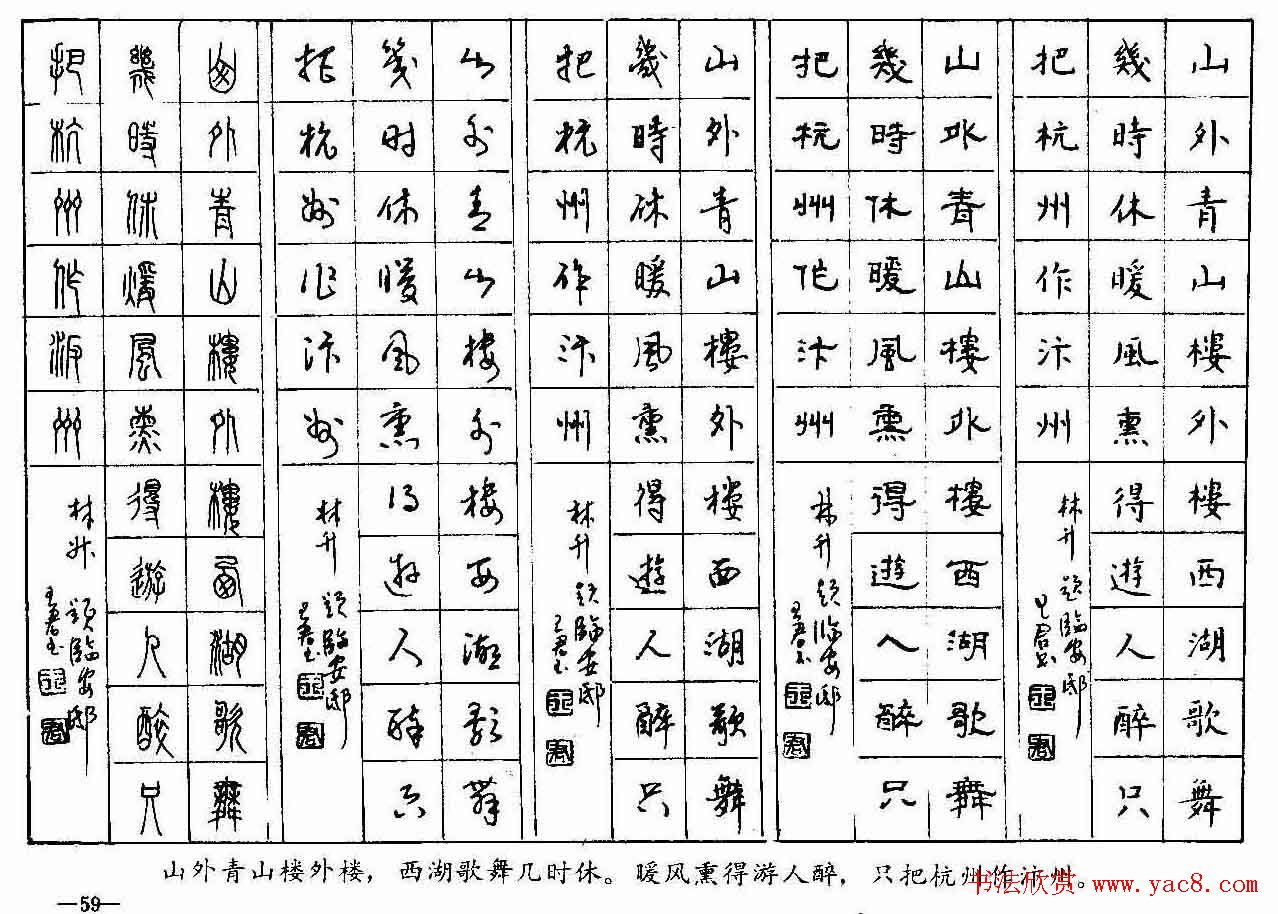 山外青山樓外樓西湖歌舞
幾時休暖風熏得遊人醉只
把杭州作汴州
林升 題臨安邸
山外青山樓外樓西湖歌舞
幾時休暖風熏得遊人醉只
把杭州作汴州
林升 題臨安邸
山外青山樓外樓西湖歌舞
幾時休暖風熏得遊人醉只
把杭州作汴州
林升 題臨安邸
山外青山楼外楼西湖歌舞
幾时休暖風熏得遊人醉只
把杭州作汴州
林升 題臨安邸
山外青山樓外樓西湖歌舞
幾時休煖風熏得遊人醉只
把杭州作汴州
林升 題臨安邸
山外青山楼外楼，西湖歌舞几时休。暖风熏得游人醉，只把杭州作汴州。
书法欣赏 www.yac8.com
—59—